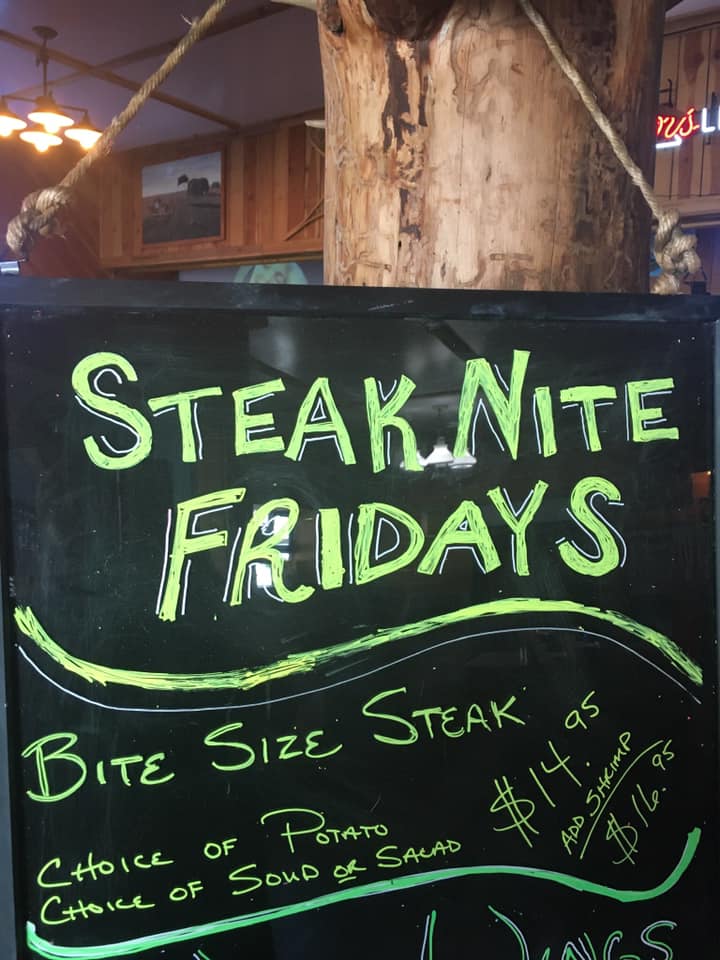 STEAK NITE
FRIDAYS
BITE SIZE STEAK
$14.95
ADD SHRIMP
$16.95
CHOICE OF POTATO
CHOICE OF SOUP OR SALAD